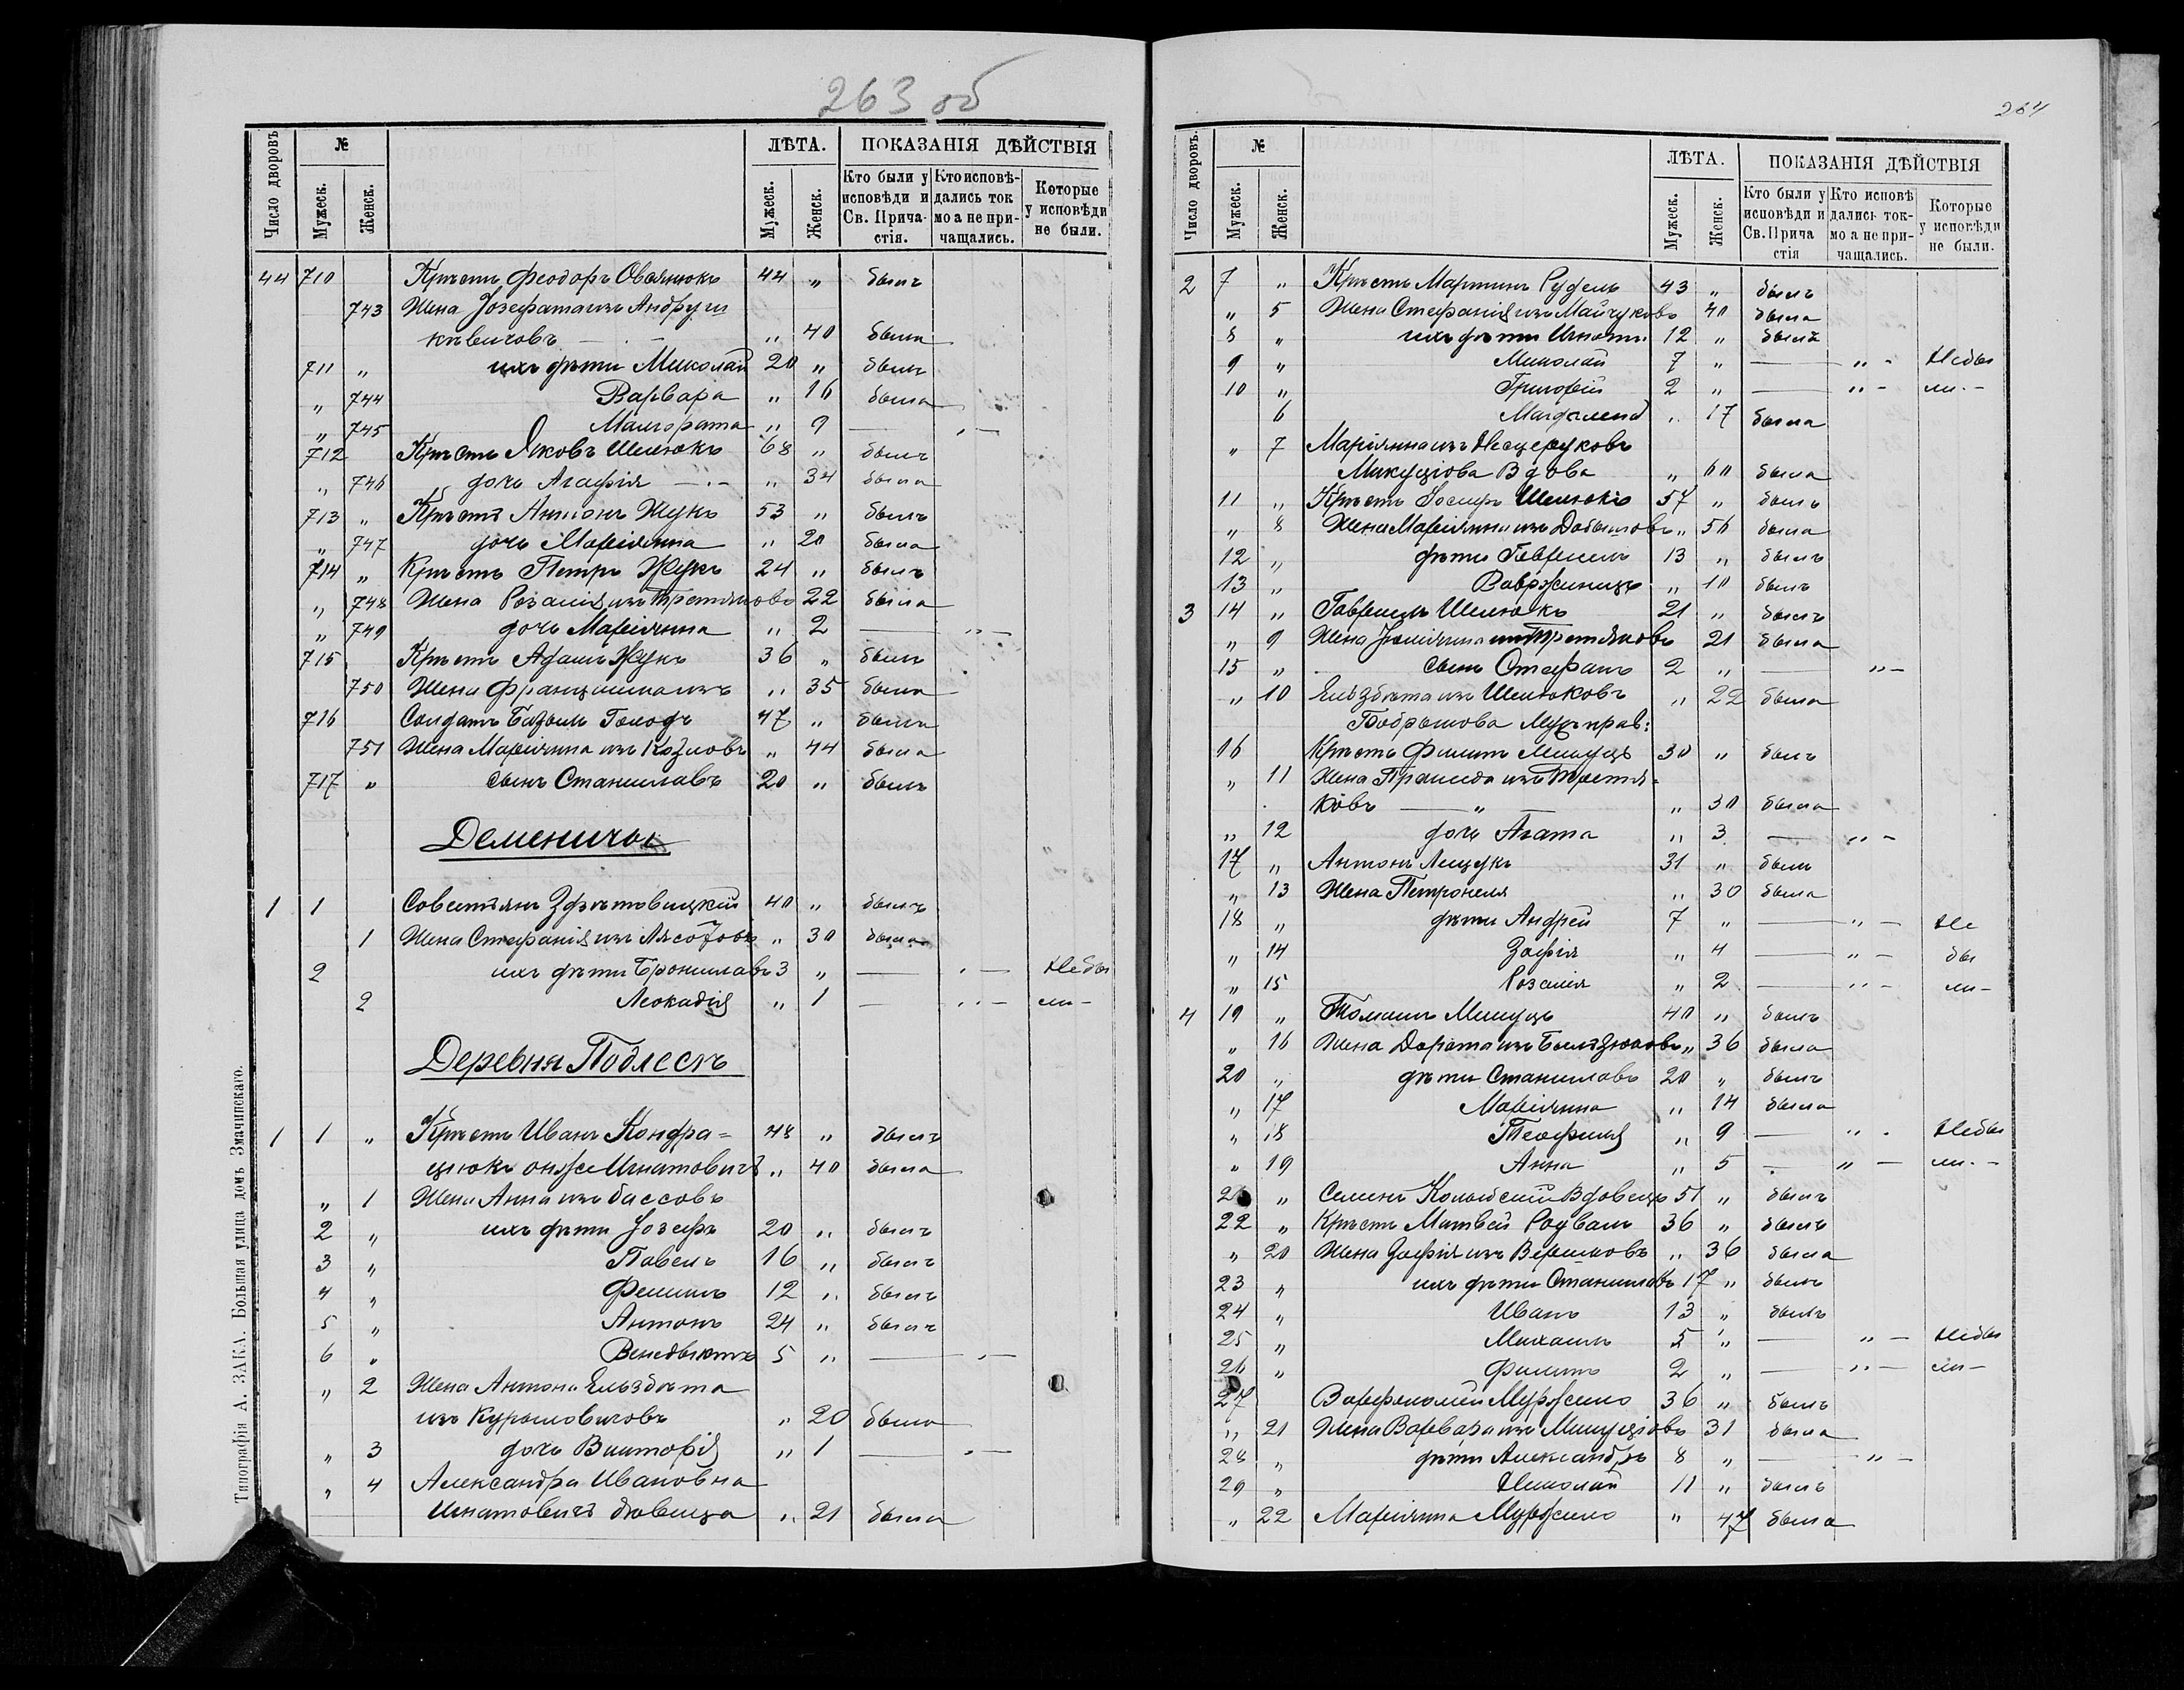 263 об
Число дворовъ
№
Мужеск.
Женск.
ЛѢТА.
Мужеск.
Женск.
ПОКАЗАНІЯ ДѢЙСТВІЯ
Кто были у исповѣди и Св. Прича-стія.
Кто исповѣ-дались ток мо а не при-чащались.
Которые у исповѣди не были.
44 710 Крѣстъ Феодоръ 44 „ былъ
743 Жена Іозефата изъ Андруш
кѣвичовъ „ 40 была
711 „ ихъ дѣти Миколай 20 „ былъ
„ 744 Варвара „ 16 была
„ 745 Малгората „ 9 — „ —
712 Крѣстъ Яковъ Шелюкъ 68 „ былъ
„ 746 дочь Агафія „ 34 была
713 „ Крѣстъ Антонъ Жукъ 53 „ былъ
„ 747 дочь Маріянна „ 20 была
714 „ Крѣстъ Петръ Жукъ 24 „ былъ
„ 748 Жена Розалія изъ Третяковъ 22 была
„ 749 дочь Маріянна „ 2 — „ —
715 Крѣстъ Адамъ Жукъ 36 „ былъ
750 Жена Францишка изъ „ 35 была
716 Солдатъ Базыль Голодъ 47 „ былъ
751 Жена Маріянна изъ Козловъ „ 44 была
717 „ сынъ Станиславъ 20 „ былъ
Деменичы
1 1 40 „ былъ
1 Жена Стефанія изъ „ 30 была
2 ихъ дѣти Брониславъ 3 „ — „ — Небы
2 Леокадія „ 1 — „ — ли -
Деревня Подлесъ
1 1 „ Крѣстъ Иванъ Кондра=
48 „ былъ
цюкъ онже Игнатовичъ „ 40 была
„ 1 Жена Анна изъ Бассовъ
2 „ ихъ дѣти Іозефъ 20 „ былъ
3 „ Павелъ 16 „ былъ
4 „ 12 „ былъ
5 „ Антонъ 24 „ былъ
6 „ Венедыктъ 5 „ — „ —
„ 2 Жена Антона Ельзбѣта
изъ Курыловичовъ „ 20 была
„ 3 дочь Викторія „ 1 — „ —
„ 4 Александра Ивановна
Игнатовичъ дѣвица „ 21 была
Типографія А. ЗАКА. Большая улица домъ Змачинскаго.
264
Число дворовъ.
№
Мужеск.
Женск.
ЛѢТА.
Мужеск.
Женск.
ПОКАЗАНІЯ ДѢЙСТВІЯ
Кто были у исповѣди и Св. Прича стія
Кто исповѣ дались ток-мо а не при-чащались.
Которые у исповѣди не были.
2 7 „ Крѣстъ Мартинъ Рудель 43 „ былъ
„ 5 Жена Стефанія изъ Майчуковъ 40 была
8 „ ихъ дѣти Игнатъ 12 „ былъ
9 „ Миколай 7 „ — „ - Небы
10 „ Григорій 2 „ — „ - ли. -
6 Магдалена „ 17 была
„ 7 Маріянна изъ Несцеруковъ
Микуціова Вдова „ 60 была
11 „ Крѣстъ Іосифъ Шелюкъ 57 „ былъ
„ 8 Жена Маріянна изъ „ 56 была
12 „ дѣти Гавріилъ 13 „ былъ
13 „ Вавржинецъ „ 10 былъ
3 14 „ Гавріилъ Шелюкъ 21 „ былъ
„ 9 Жена Юліянна изъ Третяковъ 21 была
15 „ сынъ Стефанъ 2 „ — „ -
„ 10 Ельзбѣта изъ Шелюковъ „ 22 была
16 Крѣстъ Филипъ 30 „ былъ
„ 11 Жена изъ Третя-
ковъ — „ — „ 30 была
„ 12 дочь Агата „ 3 — „ -
17 „ Антонъ Лещукъ 31 „ былъ
„ 13 Жена Петронеля „ 30 была
18 „ дѣти Андрей 7 „ — „ — Не
„ 14 Зофія „ 4 — „ - бы
„ 15 Розалія „ 2 — „ - ли-
4 19 „ Томашъ 40 „ былъ
„ 16 Жена Дорота изъ „ 36 была
20 „ дѣти Станиславъ 20 „ былъ
„ 17 Маріянна „ 14 была
„ 18 Теофиля „ 9 — „ . Небы
„ 19 Анна „ 5 — „ — ли. -
„ Семенъ Вдовецъ 51 „ былъ
22 „ Крѣстъ Матвей Родвалъ 36 „ былъ
„ 20 Жена Зофія изъ „ 36 была
23 „ ихъ дѣти Станиславъ 17 „ былъ
24 „ Иванъ 13 „ былъ
25 „ Михаилъ 5 „ — „ — Небы
26 „ Филипъ 2 „ — „ — ли-
27 Варфоломей Муржило 36 „ былъ
„ 21 Жена Варвара изъ 31 была
28 „ дѣти Александръ 8 „ — „ —
29 „ Николай 11 „ былъ
„ 22 Маріянна Муржило „ 47 была